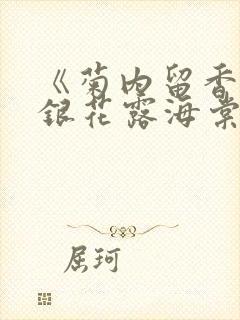 《菊内留香
银花露海棠
屈珂